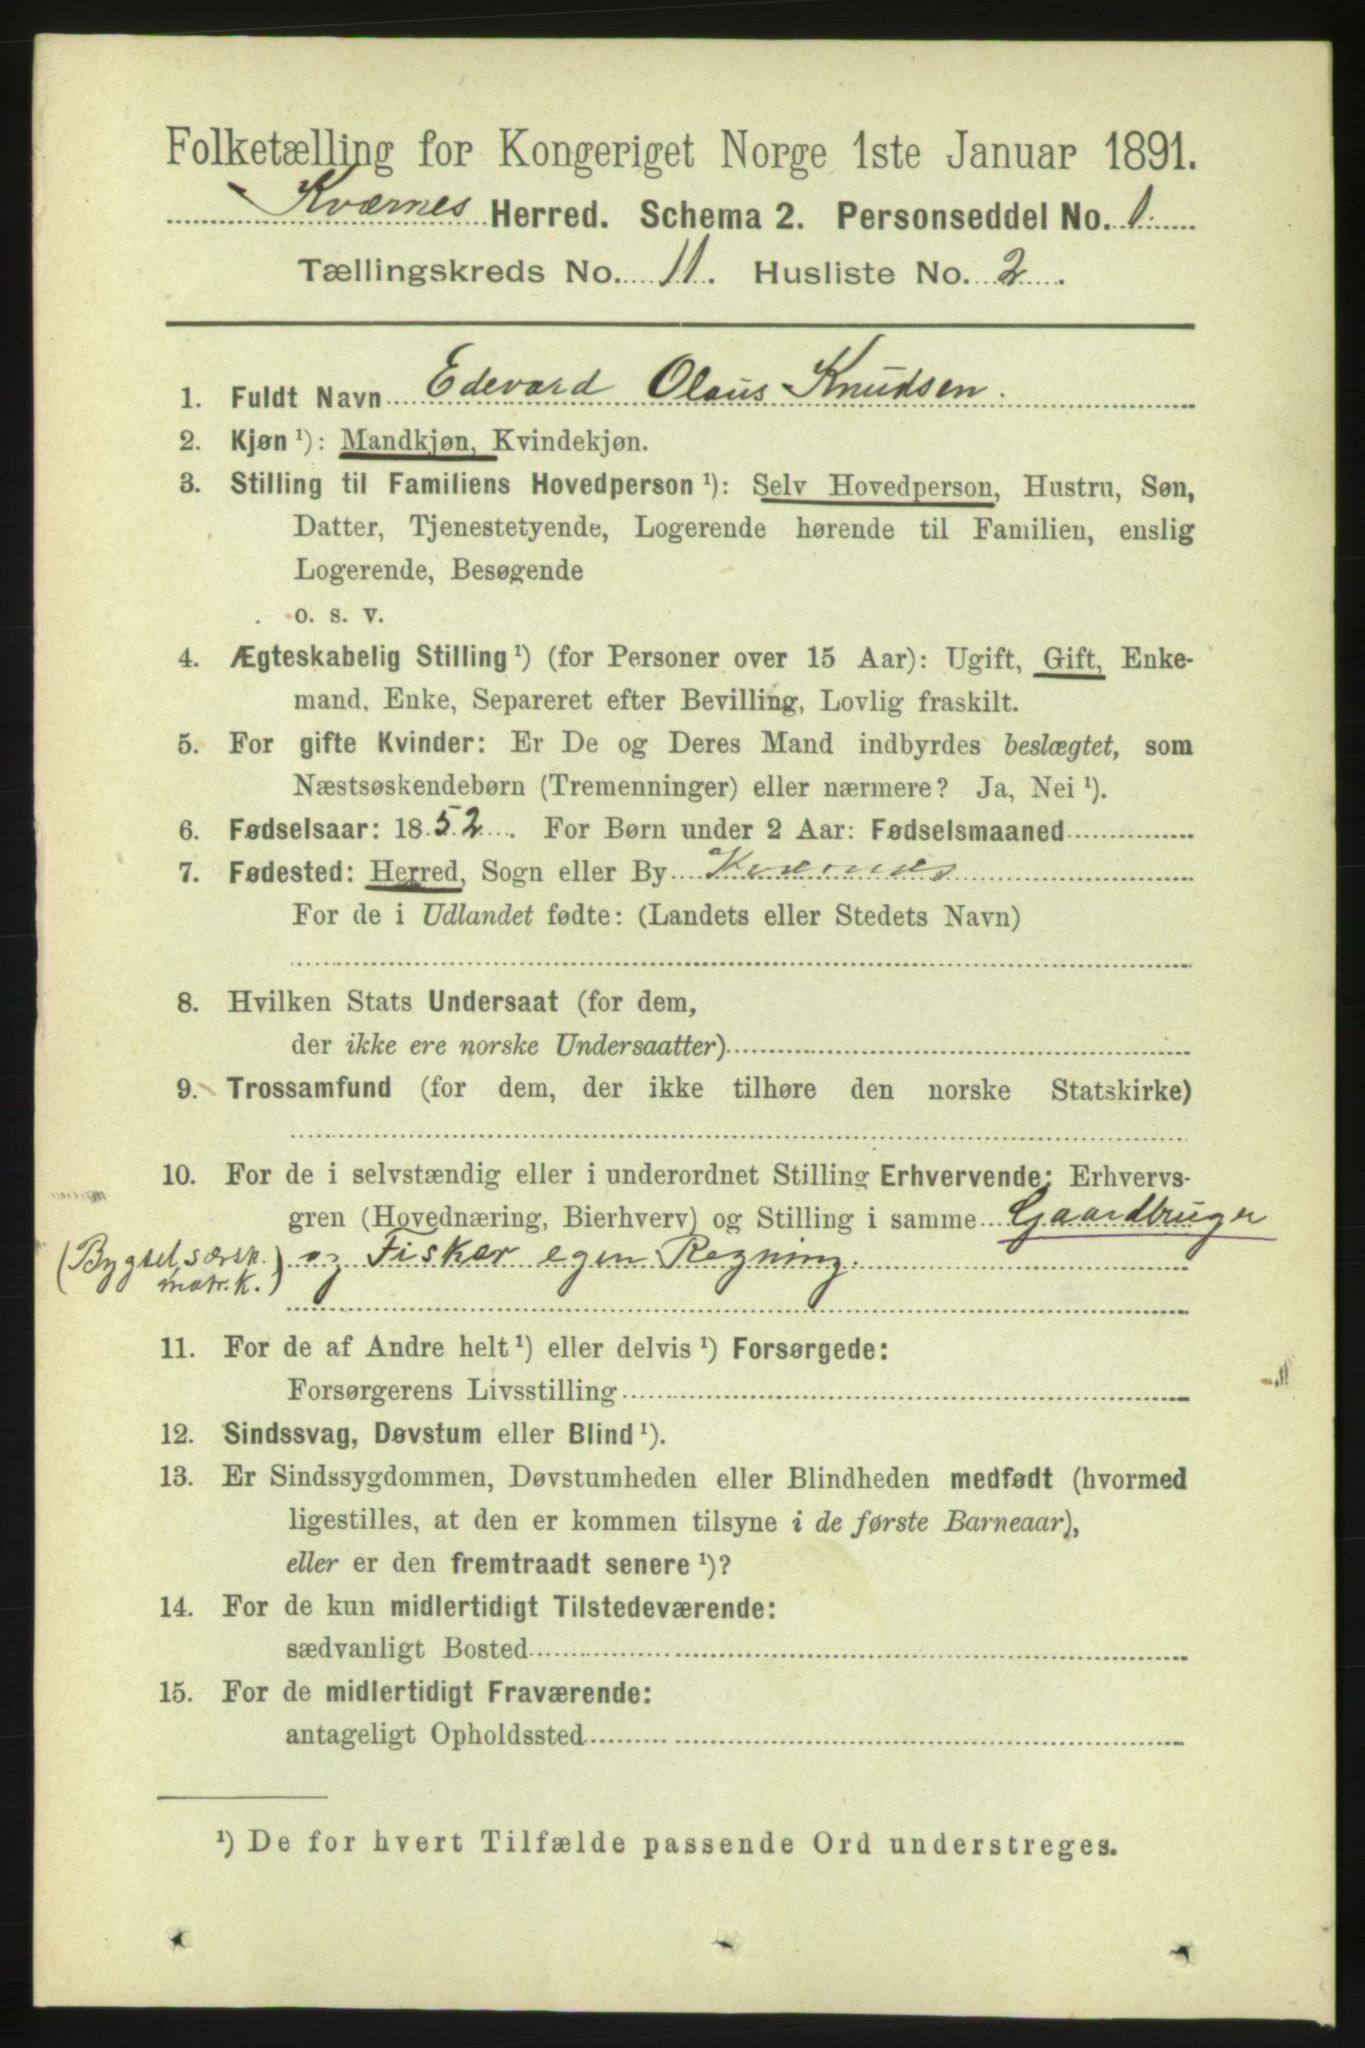 Folketælling for Kongeriget Norge 1ste Januar 1891.
Kværnes Herred. Schema 2. Personseddel No. 1.
Tællingskreds No. 11. Husliste No. 2.
1. Fuldt Navn Edevard Olaus Knudsen.
2. Kjøn ¹): Mandkjøn, Kvindekjøn.
3. Stilling til Familiens Hovedperson ¹): Selv Hovedperson, Hustru, Søn,
Datter, Tjenestetyende, Logerende hørende til Familien, enslig
Logerende, Besøgende
o. s. v.
4. Ægteskabelig Stilling ¹) (for Personer over 15 Aar): Ugift, Gift, Enke-
mand, Enke, Separeret efter Bevilling, Lovlig fraskilt.
5. For gifte Kvinder: Er De og Deres Mand indbyrdes beslægtet, som
Næstsøskendebørn (Tremenninger) eller nærmere? Ja, Nei ¹).
6. Fødselsaar: 1852. For Børn under 2 Aar: Fødselsmaaned
7. Fødested: Herred, Sogn eller By Kværnes
For de i Udlandet fødte: (Landets eller Stedets Navn)
8. Hvilken Stats Undersaat (for dem,
der ikke ere norske Undersaatter)
9. Trossamfund (for dem, der ikke tilhøre den norske Statskirke)
10. For de i selvstændig eller i underordnet Stilling Erhvervende: Erhvervs-
gren (Hovednæring, Bierhverv) og Stilling i samme Gaardbruger
(Bygsel, særsk. matr. k.) og Fisker egen Regning.
11. For de af Andre helt ¹) eller delvis ¹) Forsørgede:
Forsørgerens Livsstilling
12. Sindssvag, Døvstum eller Blind ¹).
13. Er Sindssygdommen, Døvstumheden eller Blindheden medfødt (hvormed
ligestilles, at den er kommen tilsyne i de første Barneaar),
eller er den fremtraadt senere ¹)?
14. For de kun midlertidigt Tilstedeværende:
sædvanligt Bosted
15. For de midlertidigt Fraværende:
antageligt Opholdssted
¹) De for hvert Tilfælde passende Ord understreges.